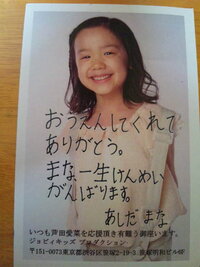 おうえんしてくれて
ありがとう。
まな一生けんめい
がんばります。
あしだ まな
いつも芦田愛菜を応援頂き有難う御座います。
ジョビィキッズ プロダクション
〒151-0073東京都渋谷区笹塚2-19-3 笹塚昭和ビル6F